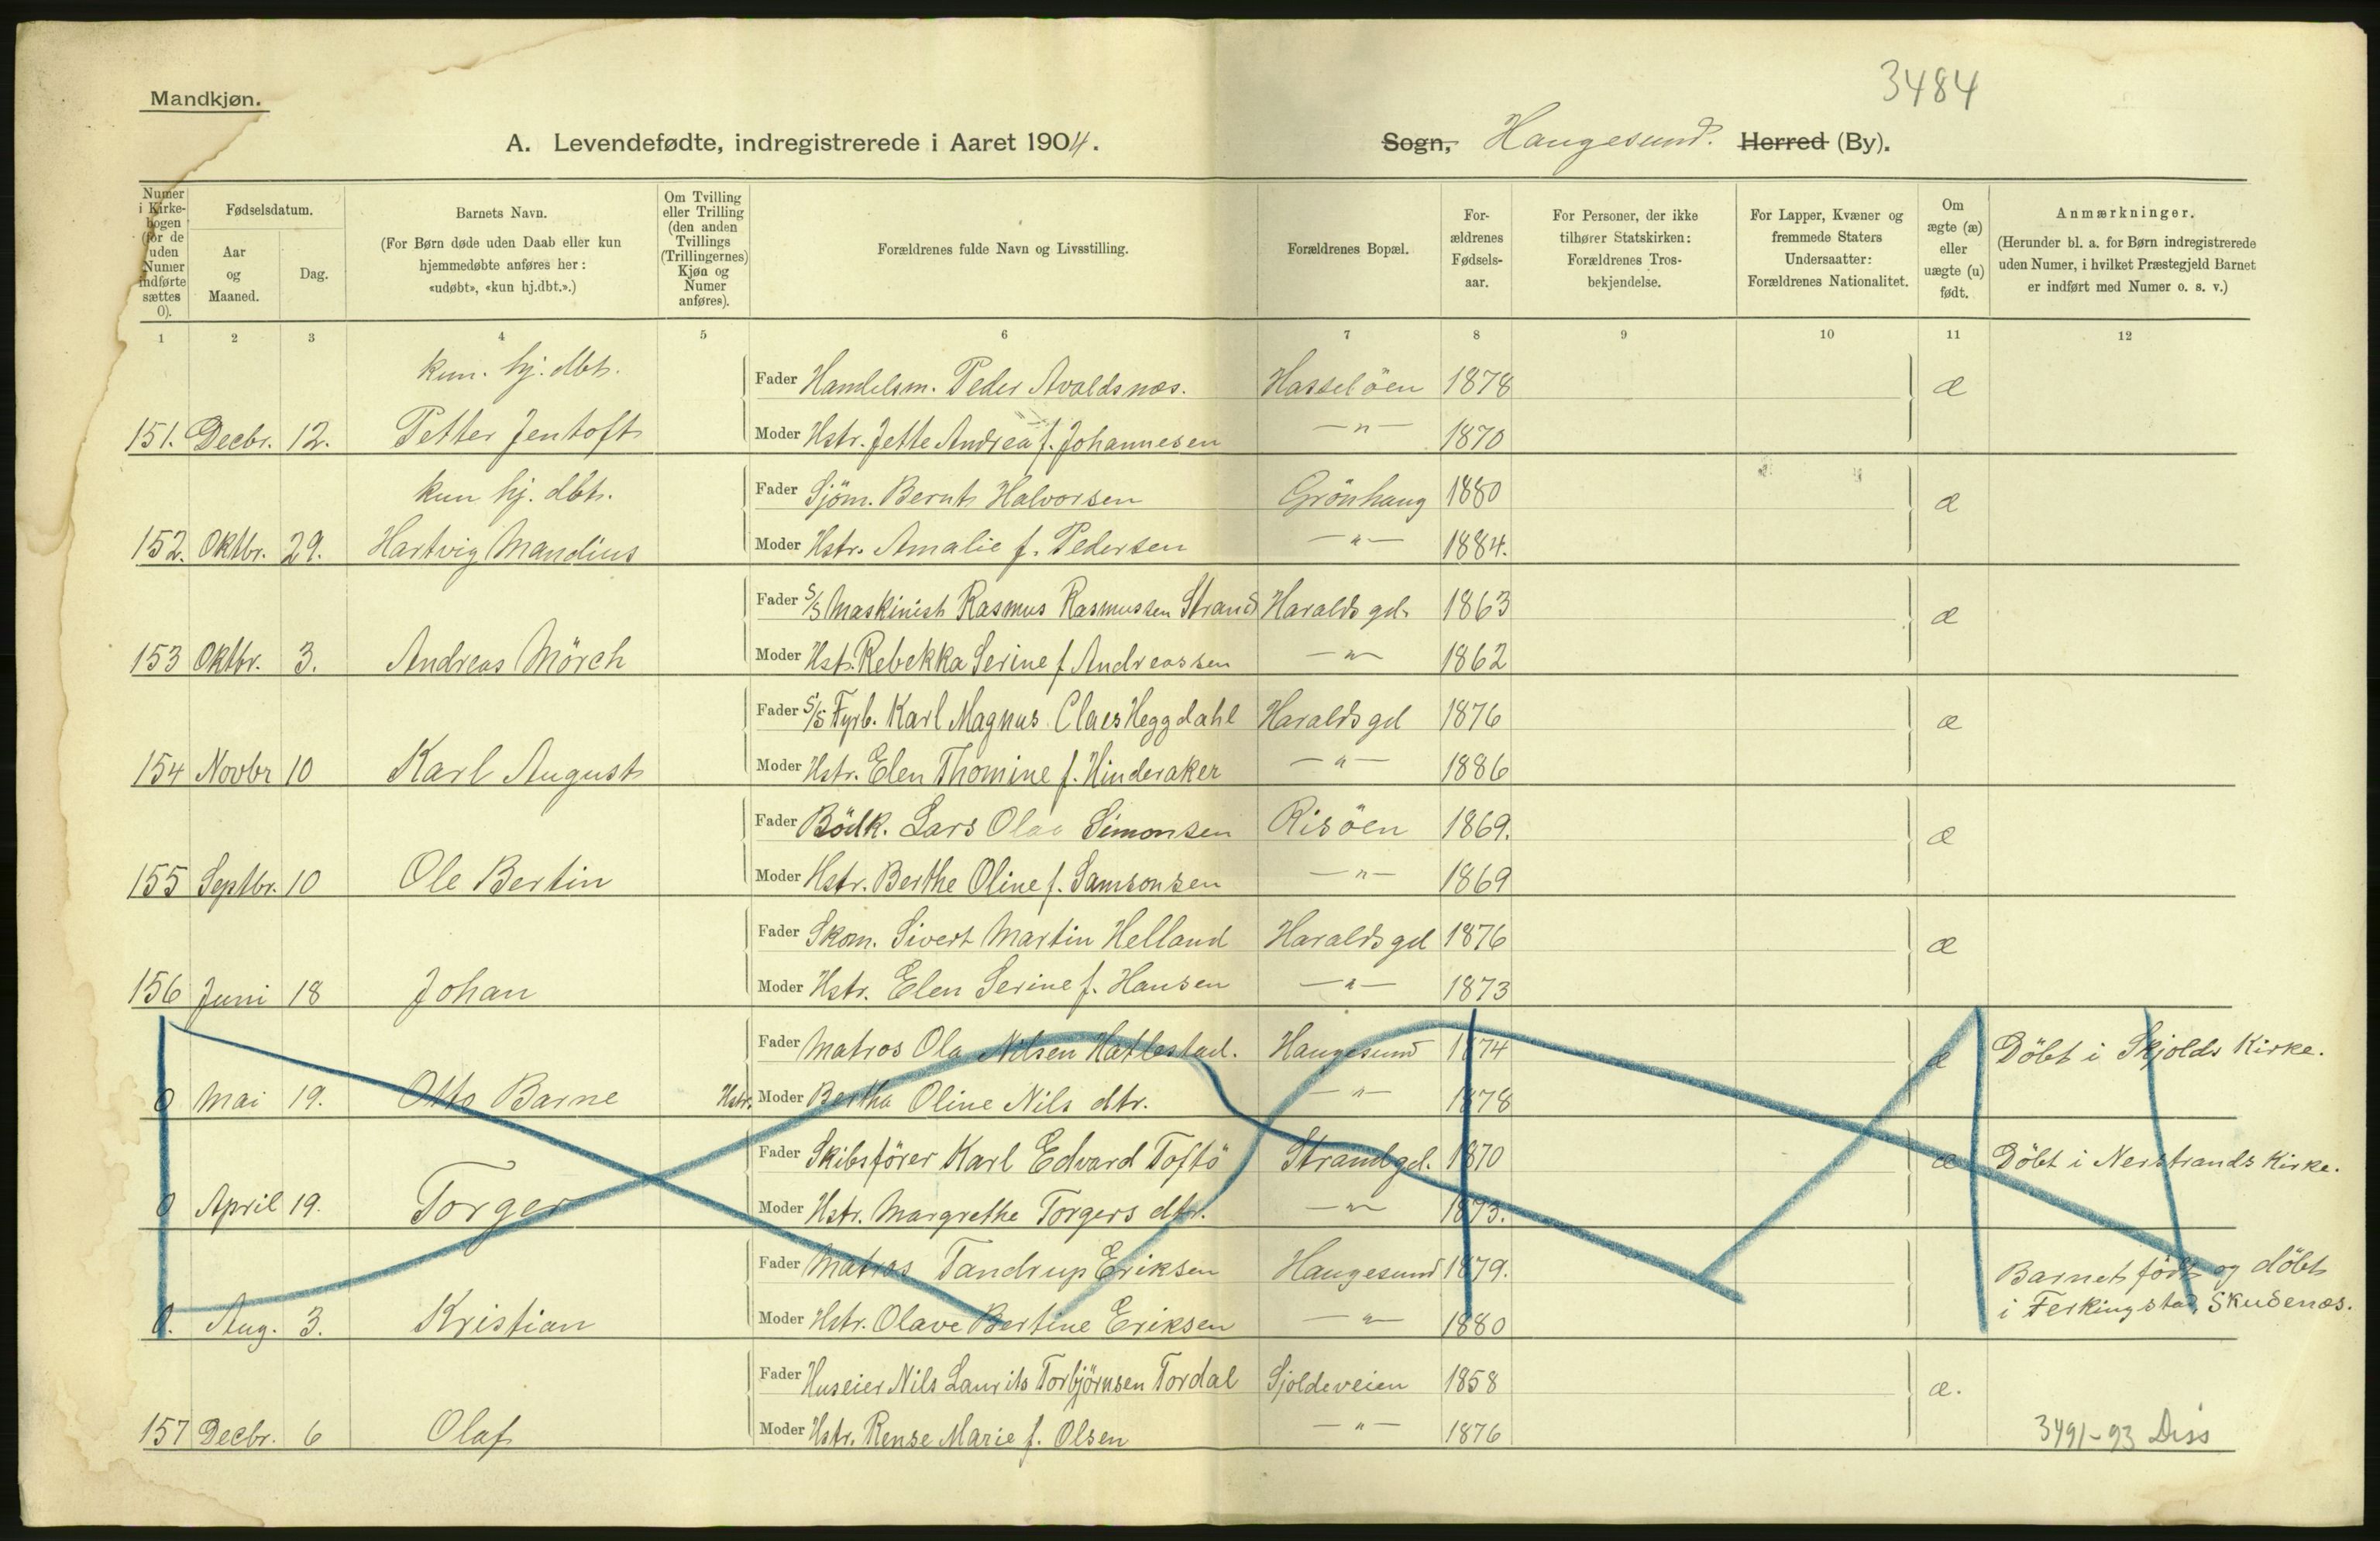 3484
Mandkjøn.
A. Levendefødte, indregistrerede i Aaret 1904.
Sogn, Haugesund. Herred (By).
Numer i Kirke-bogen (for de uden Numer indførte sættes 0).
Fødselsdatum.
Aar og Maaned.
Dag.
Barnets Navn.
(For Børn døde uden Daab eller kun hjemmedøbte anføres her: «udøbt», «kun hj.dbt.».)
Om Tvilling eller Trilling (den anden Tvillings (Trillingernes) Kjøn og Numer anføres).
Forældrenes fulde Navn og Livsstilling.
Forældrenes Bopæl.
For-ældrenes Fødsels-aar.
For Personer, der ikke tilhører Statskirken: Forældrenes Tros-bekjendelse.
For Lapper, Kvæner og fremmede Staters Undersaatter: Forældrenes Nationalitet.
Om ægte (æ) eller uægte (u) født.
Anmærkninger.
(Herunder bl. a. for Børn indregistrerede uden Numer, i hvilket Præstegjeld Barnet er indført med Numer o. s. v.)
1 2 3 4 5 6 7 8 9 10 11 12
kun. hj. dbt. Fader Handelsm. Peder Avaldsnæs. Hasselöen 1878 æ
151. Decbr. 12. Petter Jentoft Moder Hstr. Jette Andrea f. Johannesen —"— 1870
kun hj. dbt. Fader Sjöm. Bernt Halvorsen Grönhaug 1880 æ
152. Oktbr. 29. Hartvig Mandius Moder Hstr. Amalie f. Pedersen —"— 1884.
Fader S/S Maskinist Rasmus Rasmussen Strand Haralds gd. 1863 æ
153 Oktbr. 3. Andreas Mörch Moder Hst. Rebekka Serine f. Andreassen —"— 1862
Fader S/S Fyrb. Karl Magnus Claes Heggdahl Haralds gd 1876 æ
154 Novbr 10 Karl August Moder Hstr. Elen Thomine f. Hinderaker —"— 1886
Fader Bödk. Lars Olaa Simonsen Risöen 1869. æ
155 Septbr. 10 Ole Bertin Moder Hstr. Berthe Oline f. Samsonsen —"— 1869
Fader Skom. Sivert Martin Helland Haralds gd 1876 æ
156 Juni 18 Johan Moder Hstr. Elen Serine f. Hansen —"— 1873
Fader Matros Ola Nilsen Hatlestad. Haugesund 1874 æ Döbt i Skjolds Kirke.
0 Mai 19. Otto Barne Hstr. Moder Bertha Oline Nils dtr. —"— 1878
Fader Skibsförer Karl Edvard Toftö Strandgd. 1870 æ Döbt i Nerstrands Kirke.
0 April 19. Torger Moder Hstr. Margrethe Torgers dtr. —"— 1873.
Fader Matros Tandrup Eriksen Haugesund 1879. Barnet födt og döbt
0. Aug. 3. Kristian Moder Hstr. Olave Bertine Eriksen —"— 1880 i Ferkingstad, Skudenæs.
Fader Huseier Nils Laurits Torbjörnsen Tordal Sjoldeveien 1858 æ.
157 Decbr. 6 Olaf Moder Hstr. Rense Marie f. Olsen —"— 1876
3491-93 Diss